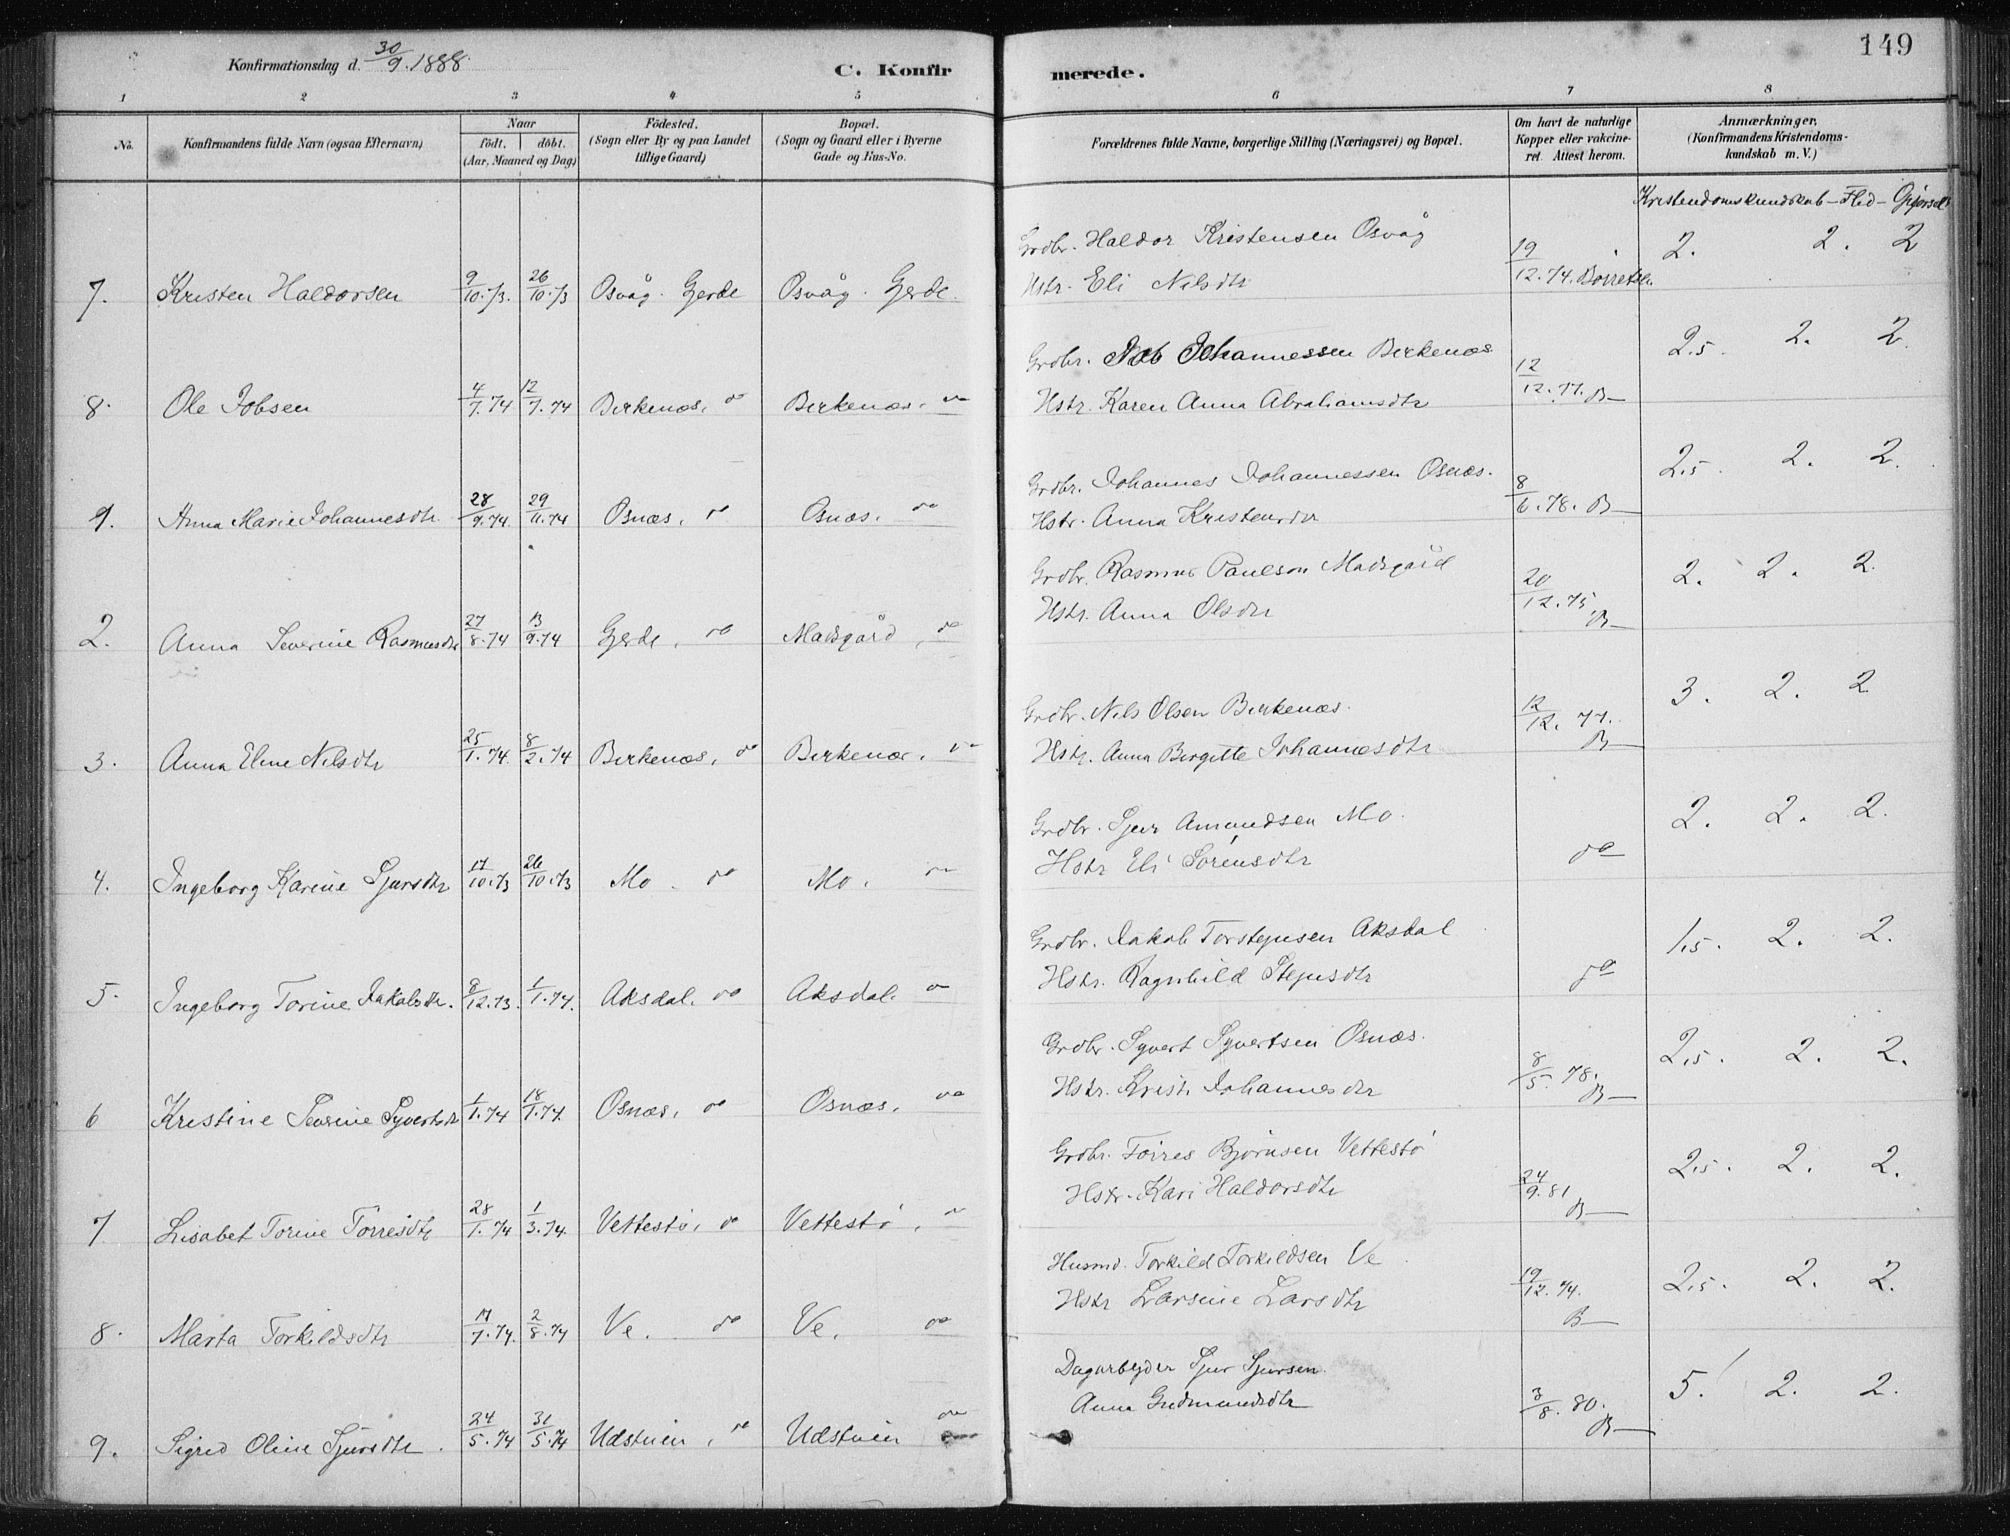 149
Konfirmationsdag d. 30/9. 1888.
C. Konfirmerede.
1 2 3 4 5 6 7 8
No.
Konfirmandens fulde Navn (ogsaa Efternavn)
Naar
födt. döbt.
(Aar, Maaned og Dag)
Födested.
(Sogn eller By og paa Landet
tillige Gaard)
Bopæl.
(Sogn og Gaard eller i Byerne
Gade og Hus-No.
Forældrenes fulde Navne, borgerlige Stilling (Næringsvei) og Bopæl.
Om havt de naturlige
Kopper eller vakcine-
ret Attest herom.
Anmærkninger.
(Konfirmandens Kristendoms-
kundskab m. V.)
Kristendomskundskab - Flid -
Grdbr. Haldor Kristensen Osvåg 2. 2. 2
7. Kristen Haldorsen 9/10.73. 26/10.73 Osvåg. Gerde Osvåg. Gerde. Hstr. Eli Nilsdtr 19/12.74.
Grdbr. Job Johannessen Birkenæs 2,5. 2. 2.
8. Ole Jobsen 4/7.74 12/7.74 Birkenæs, do Birkenæs, do Hstr. Karen Anna Abrahamsdtr 12/12.77. B—
Grdbr. Johannes Johannessen Osnæs. 2,5. 2. 2.
1. Anna Marie Johannesdtr. 28/9.74 29/11.74 Osnæs, do Osnæs, do Hstr. Anna Kristensdtr 8/6.78. B—
Grdbr. Rasmus Paulson Madsgård 2. 2. 2.
2. Anna Severine Rasmusdtr 27/8.74 13/9.74 Gerde, do Madsgård, do Hstr. Anna Olsdtr 20/12.75. B—
Grdbr. Nils Olsen Birkenæs. 3. 2. 2
3. Anna Eline Nilsdtr 25/1.74. 8/2.74 Birkenæs, do Birkenæs, do Hstr. Anna Birgitte Johannesdtr 12/12.77. B—
Grdbr. Sjur Amundsen Mo. 2. 2. 2.
4. Ingeborg Karine Sjursdtr 17/10.73 26/10.73 Mo. do Mo. do Hstr Eli Sørensdtr do
Grdbr. Jakob Torstensen Aksdal 1,5. 2. 2.
5. Ingeborg Torine Jakobsdtr. 8/12.73. 1/1.74. Aksdal. do Aksdal. do Hstr. Ragnhild do
Grdbr. Syvert Syvertsen Osnæs. 2,5. 2. 2.
6 Kristine Severine Syvertsdtr 1/1.74 18/1.74 Osnæs, do Osnæs, do Hstr. Krist. Johannesdtr 8/5.78. B—
Grdbr. Tørres Bjørnsen Vettestø 2,5. 2. 2.
7. Lisabet Torine Tørresdtr 28/1.74 1/3.74. Vettestø, do Vettestø, do Hstr. Kari Haldorsdtr 24/9.81 B—
Husmd. Torkild Torkildsen Ve 2,5. 2. 2.
8. Marta Torkildsdtr 17/7.74. 2/8.74 Ve. do Ve, do Hstr Larsine Larsdtr 19/12.74. B—
Dagarbejder Sjur Sjursen. 5.! 2. 2.
9. Sigrid Oline Sjursdtr. 24/5.74 31/5.74 Udstuien, do Udstuien do Anna Gudmundsdtr 3/8.80. B—